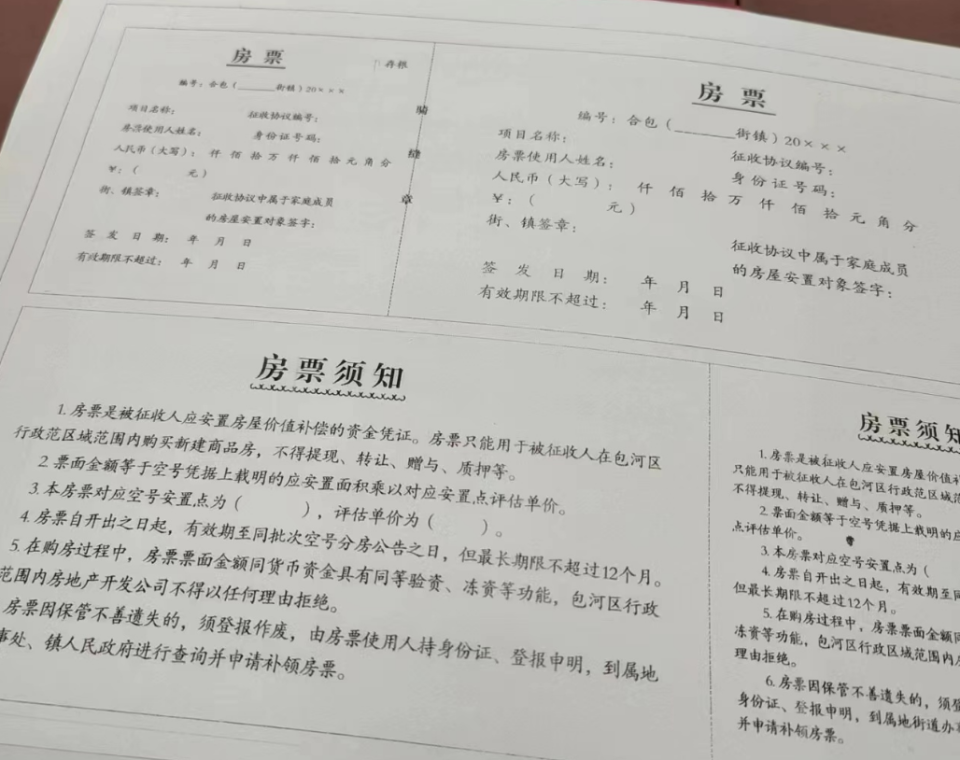 房票
存根
编号：合包（______街镇）20×××
项目名称：
征收协议编号：
房票使用人姓名：
身份证号码：
人民币（大写）： 仟 佰 拾 万 仟 佰 拾 元 角 分
¥：（ 元）
街、镇签章：
征收协议中属于家庭成员
的房屋安置对象签字：
签 发 日 期： 年 月 日
有效期限不超过： 年 月 日
骑
缝
章
房票
编号：合包（______街镇）20×××
项目名称：
征收协议编号：
房票使用人姓名：
身份证号码：
人民币（大写）： 仟 佰 拾 万 仟 佰 拾 元 角 分
¥：（ 元）
街、镇签章：
征收协议中属于家庭成员
的房屋安置对象签字：
签 发 日 期： 年 月 日
有效期限不超过： 年 月 日
房票须知
1. 房票是被征收人应安置房屋价值补偿的资金凭证。房票只能用于被征收人在包河区
行政范区域范围内购买新建商品房，不得提现、转让、赠与、质押等。
2. 票面金额等于空号凭据上载明的应安置面积乘以对应安置点评估单价。
3. 本房票对应空号安置点为（ ），评估单价为（ ）。
4. 房票自开出之日起，有效期至同批次空号分房公告之日，但最长期限不超过12个月。
5. 在购房过程中，房票票面金额同货币资金具有同等验资、冻资等功能，包河区行政
范围内房地产开发公司不得以任何理由拒绝。
房票因保管不善遗失的，须登报作废，由房票使用人持身份证、登报申明，到属地
事处、镇人民政府进行查询并申请补领房票。
房票须知
1. 房票是被征收人应安置房屋价值补
只能用于被征收人在包河区行政范区域范
不得提现、转让、赠与、质押等。
2. 票面金额等于空号凭据上载明的应
点评估单价。
3. 本房票对应空号安置点为（
4. 房票自开出之日起，有效期至同
但最长期限不超过12个月。
5. 在购房过程中，房票票面金额同
冻资等功能，包河区行政区域范围内房
理由拒绝。
6. 房票因保管不善遗失的，须登
身份证、登报申明，到属地街道办事
并申请补领房票。